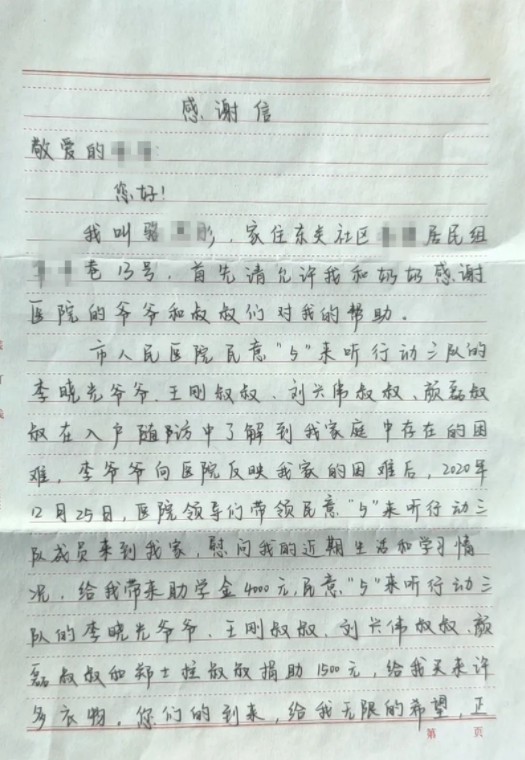 感谢信
敬爱的
您好!
我叫骆 彤,家住东关社区 居民组
巷13号,首先请允许我和奶奶感谢
医院的爷爷和叔叔们对我的帮助.
市人民医院民意"5"来听行动三队的
李晓光爷爷、王刚叔叔、刘兴伟叔叔、颜磊叔
叔在入户随访中了解到我家庭中存在的困
难,李爷爷向医院反映我家的困难后,2020年
12月25日,医院领导们带领民意"5"来听行动三
队成员来到我家,慰问我的近期生活和学习情
况,给我带来助学金4000元,民意"5"来听行动三
队的李晓光爷爷、王刚叔叔、刘兴伟叔叔、颜
磊叔叔和郑士拴叔叔捐助1500元,给我买来许
多衣物,你们的到来,给我无限的希望,正
第 页